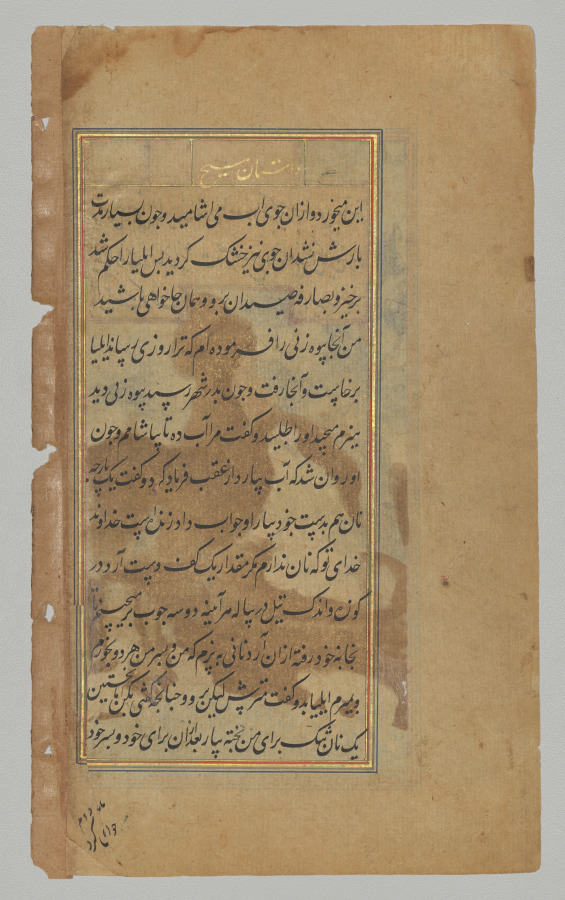 داستان مسیح
این میخورد و ازان جوی آب می اشامید و چون بسیار مدت
بارش نشد ان جوی نیز خشک کردید بس ایلیا را حکم شد
برخیز و بصارفه صیدان برو و همان جا خواهی باشید
من آنجا بیوه زنی را فرموده ام که ترا روزی رساند ایلیا
برخاست و آنجا رفت و چون بدر شهر رسید بیوه زنی دید
هیزم میچید او را طلبید و کفت مرا آب ده تا بیاشامم و چون
او روان شد که آب بیارد از عقب فریاد کرد و کفت یک پارچه
نان هم بدست خود بیار او جواب داد زنده است خداوند
خدای تو که نان ندارم مکر مقدار یک کف دست آرد در
کوزه و اندک تیل در پیاله هر آینه دو سه چوب برمیچینم تا
بخانه خود رفته ازان آرد نانی بپزم که من و پسر من هر دو بخوریم
و بمیرم ایلیا بدو کفت مترس لیکن برو و چنانچه کفتی بکن اما نخستین
یک نان تنک برای من پخته بیار بعد ازان برای خود و پسر خود